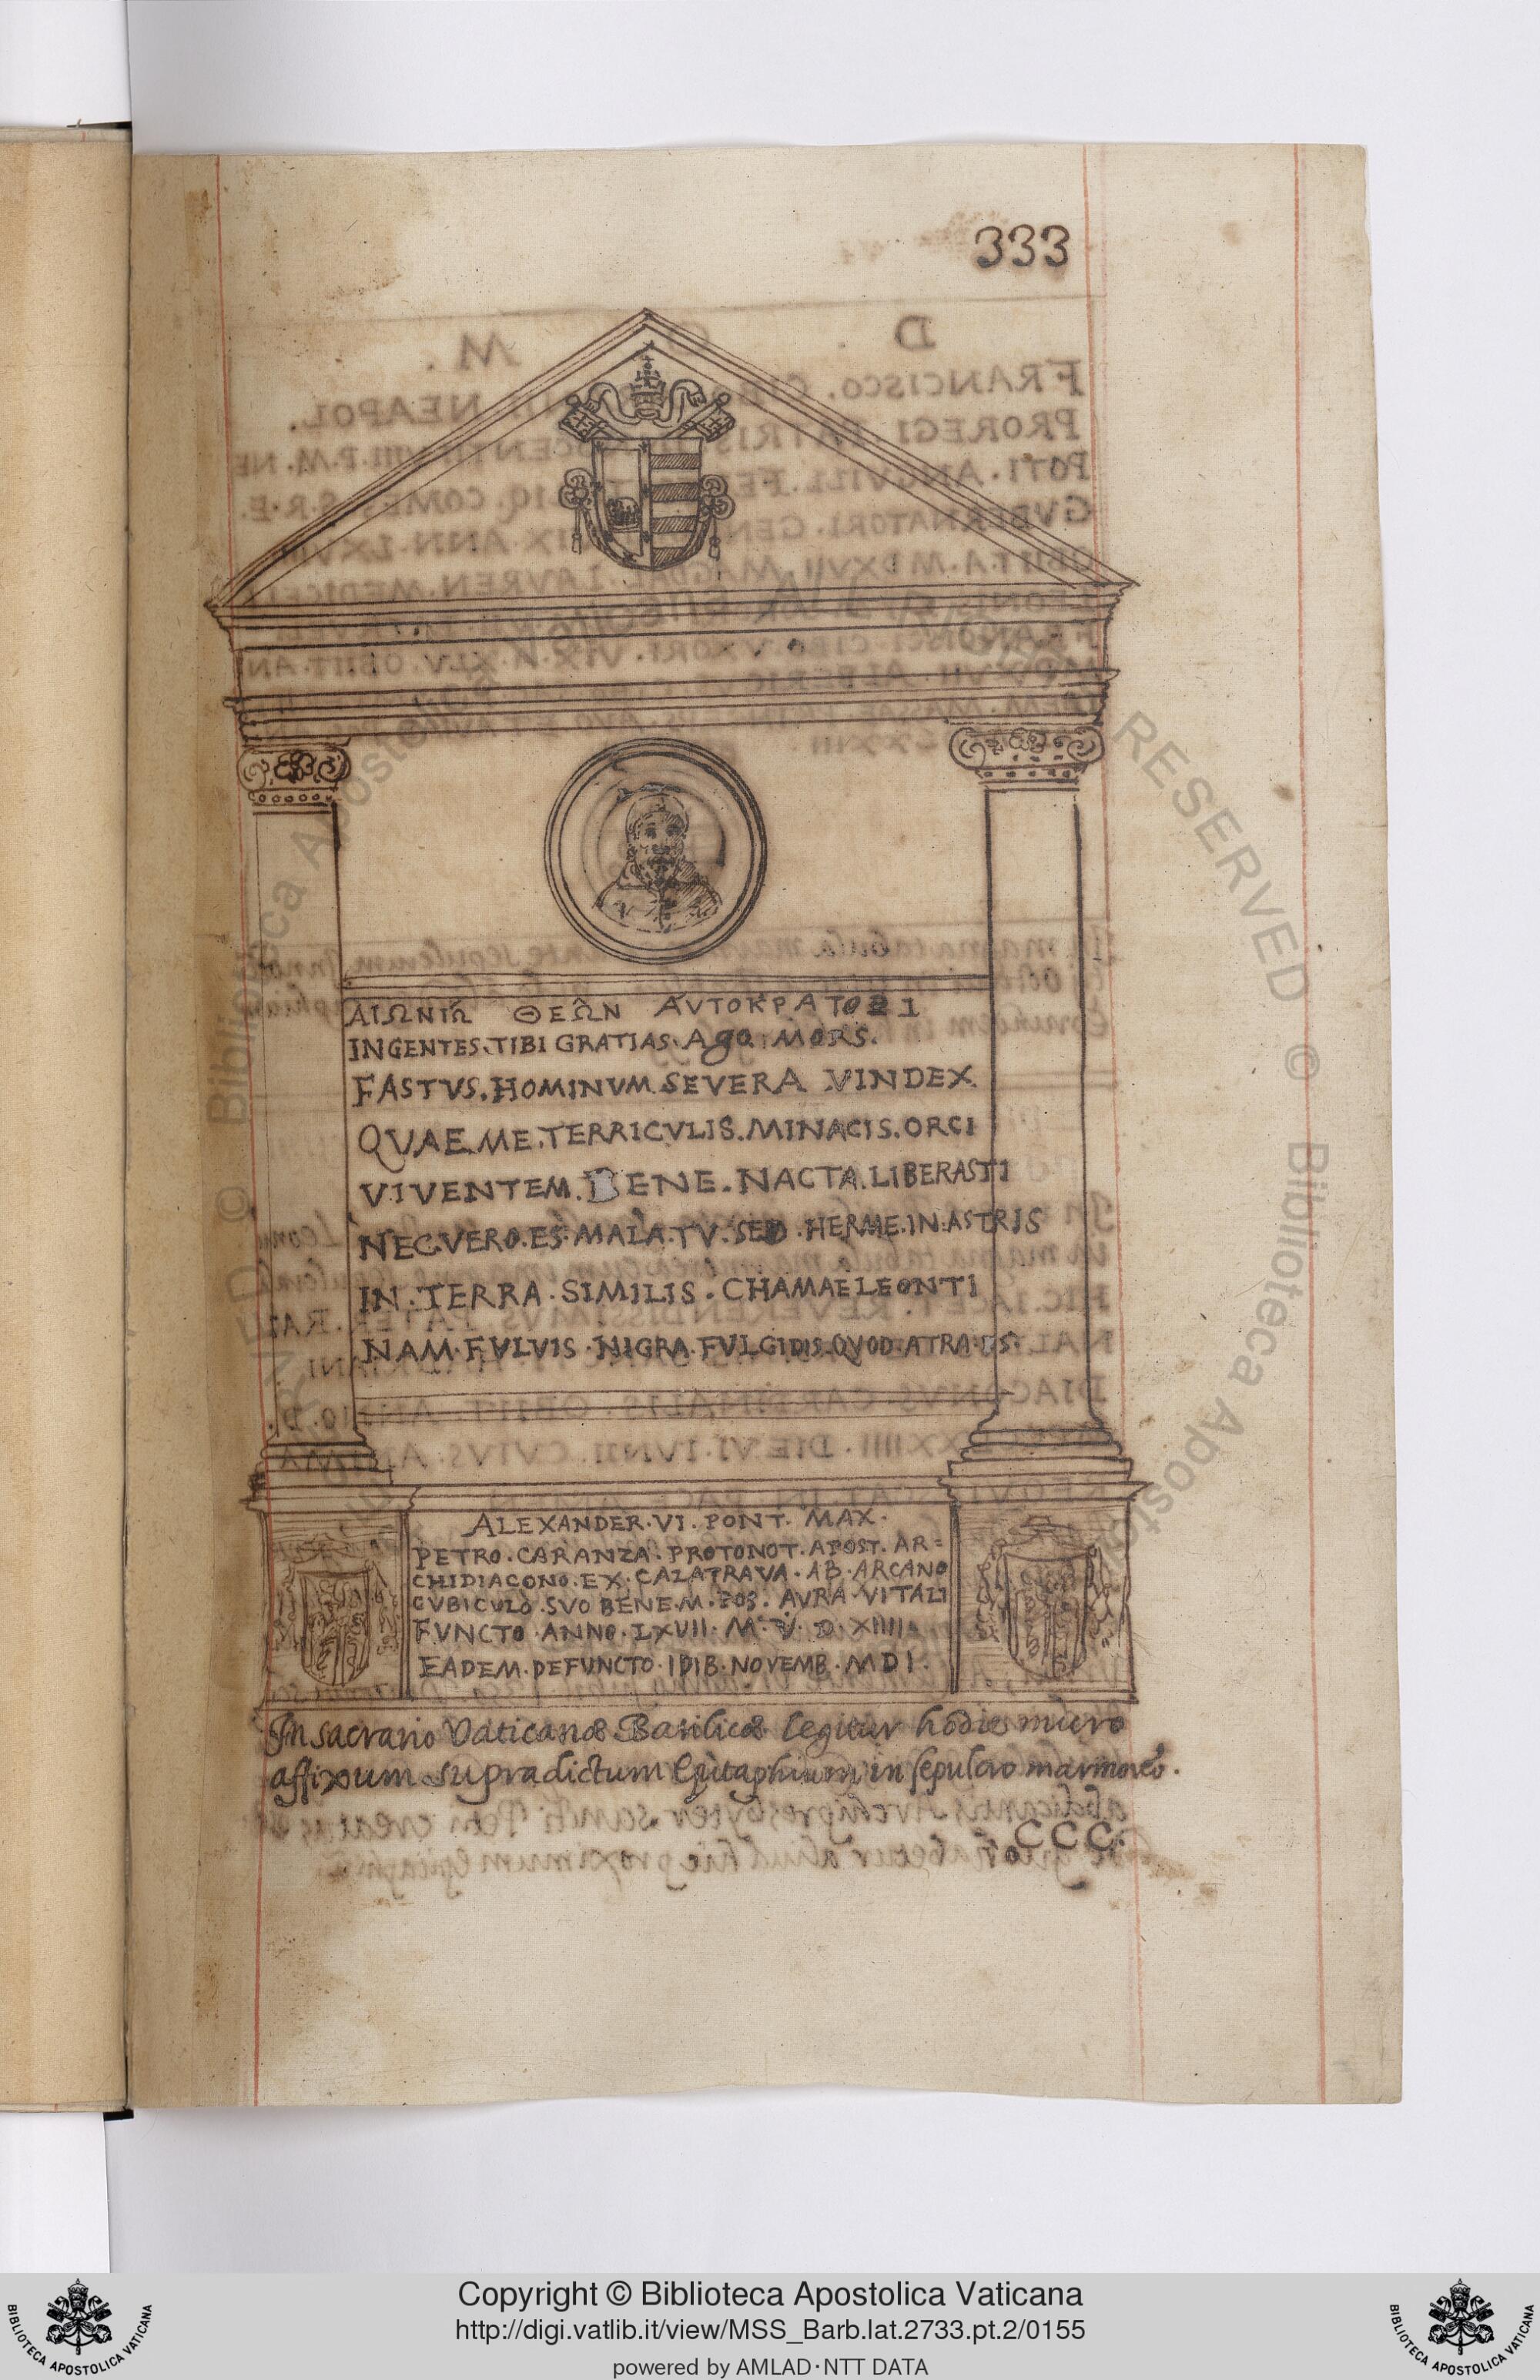 333
ΑΙΩΝΙΩ ΘΕΩΝ ΑΥΤΟΚΡΑΤΟΡΙ
INGENTES.TIBI GRATIAS.Ago.MORS.
FASTVS.HOMINVM.SEVERA VINDEX
QVAE.ME.TERRICVLIS.MINACIS.ORCI
VIVENTEM.BENE.NACTA.LIBERASTI
NEC.VERO.ES.MALA.TV.SED.HERME.IN.ASTRIS
IN.TERRA.SIMILIS.CHAMAELEONTI
NAM.FVLVIS.NIGRA.FVLGIDIS.QVOD.ATRA.ES.
ALEXANDER.VI.PONT.MAX.
PETRO.CARANZA.PROTONOT.APOST.AR=
CHIDIACONO.EX.CALATRAVA.AB.ARCANO
CVBICVLO.SVO BENE.M.POS.AVRA.VITALI
FVNCTO.ANNO.LXVII.M.V.D.XIIII
EADEM.DEFUNCTO.IDIB.NOVEMB.MDI.
In sacrario Vaticanæ Basilicæ legitur hodie muro
affixum supradictum Epitaphium in sepulcro marmoreo.
CCC.
Copyright © Biblioteca Apostolica Vaticana
http://digi.vatlib.it/view/MSS_Barb.lat.2733.pt.2/0155
powered by AMLAD·NTT DATA
BIBLIOTECA APOSTOLICA VATICANA
BIBLIOTECA APOSTOLICA VATICANA